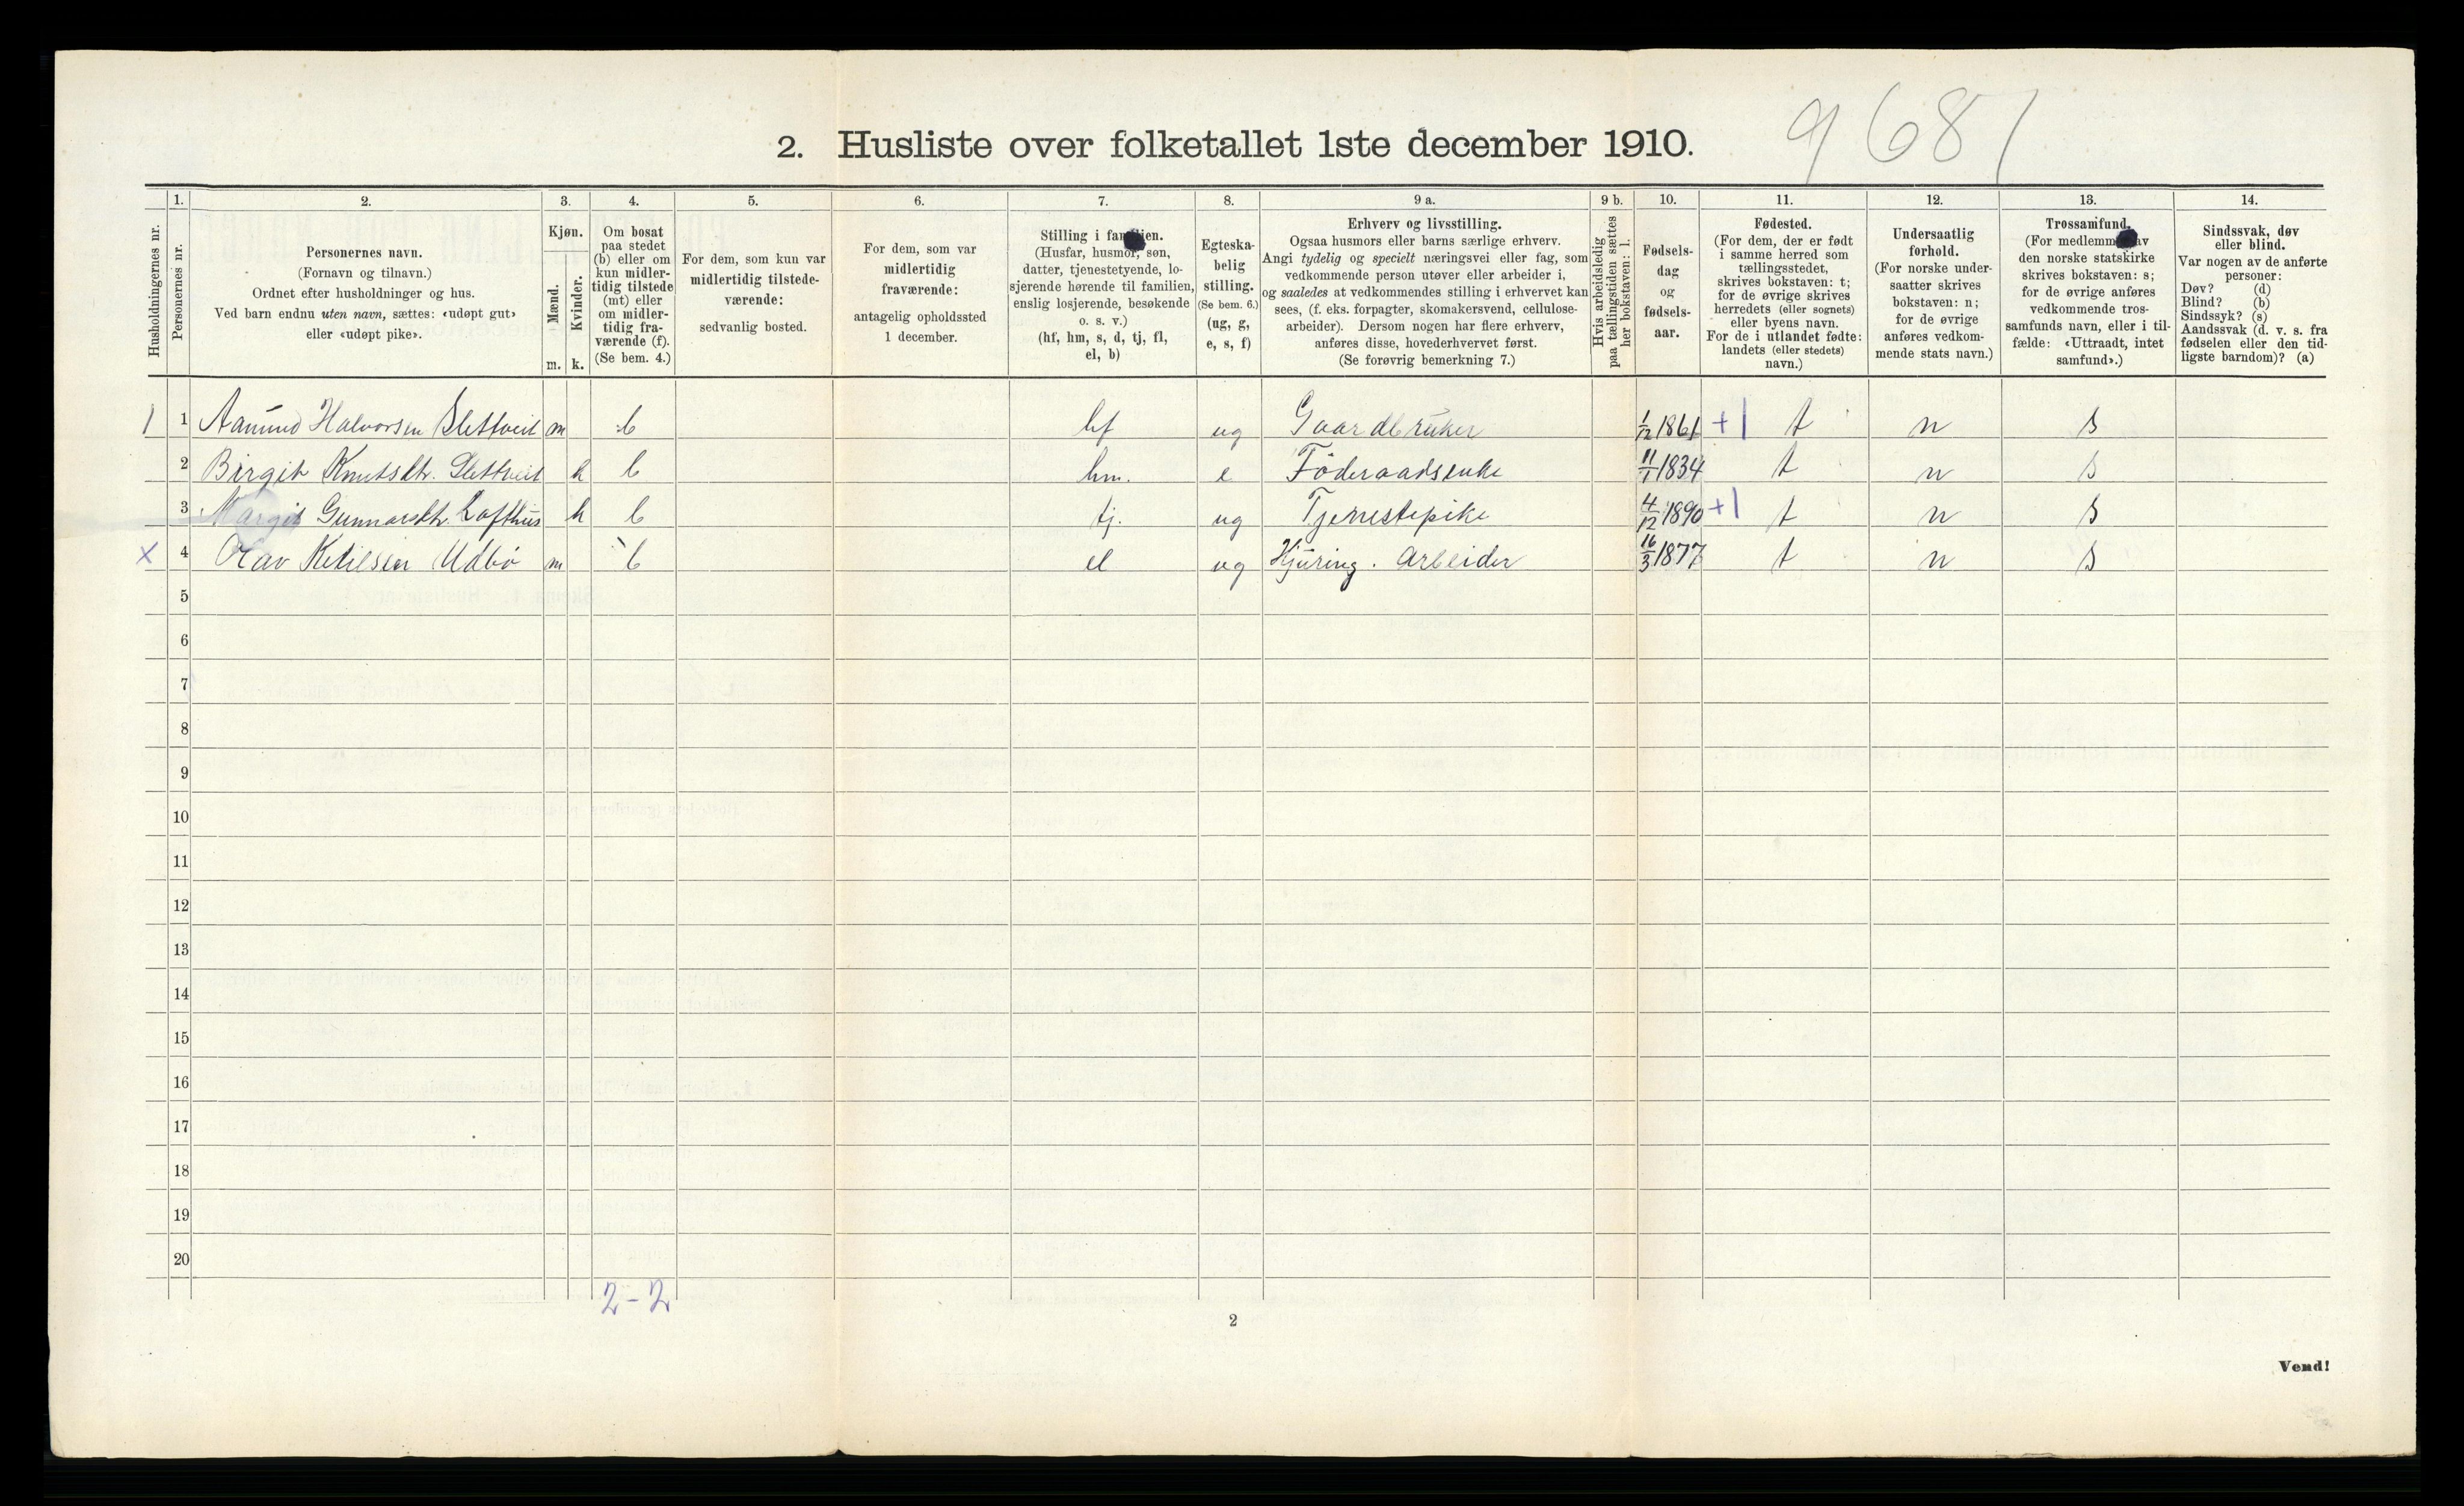 9681
2. Husliste over folketallet 1ste december 1910.
Husholdningernes nr.
1.
Personernes nr.
2.
Personernes navn.
(Fornavn og tilnavn.)
Ordnet efter husholdninger og hus.
Ved barn endnu uten navn, sættes: «udøpt gut»
eller «udøpt pike».
3.
Kjøn.
Mænd.
Kvinder.
m. k.
4.
Om bosat
paa stedet
(b) eller om
kun midler-
tidig tilstede
(mt) eller
om midler-
tidig fra-
værende (f).
(Se bem. 4.)
5.
For dem, som kun var
midlertidig tilstede-
værende:
sedvanlig bosted.
6.
For dem, som var
midlertidig
fraværende:
antagelig opholdssted
1 december.
7.
Stilling i familien.
(Husfar, husmor, søn,
datter, tjenestetyende, lo-
sjerende hørende til familien,
enslig losjerende, besøkende
o. s. v.)
(hf, hm, s, d, tj, fl,
el, b)
8.
Egteska-
belig
stilling.
(Se bem. 6.)
(ug, g,
e, s, f)
9 a.
Erhverv og livsstilling.
Ogsaa husmors eller barns særlige erhverv.
Angi tydelig og specielt næringsvei eller fag, som
vedkommende person utøver eller arbeider i,
og saaledes at vedkommendes stilling i erhvervet kan
sees, (f. eks. forpagter, skomakersvend, cellulose-
arbeider). Dersom nogen har flere erhverv,
anføres disse, hovederhvervet først.
(Se forøvrig bemerkning 7.)
9 b.
Hvis arbeidsledig
paa tællingstiden sættes
her bokstaven: l.
10.
Fødsels-
dag
og
fødsels-
aar.
11.
Fødested.
(For dem, der er født
i samme herred som
tællingsstedet,
skrives bokstaven: t;
for de øvrige skrives
herredets (eller sognets)
eller byens navn.
For de i utlandet fødte:
landets (eller stedets)
navn.)
12.
Undersaatlig
forhold.
(For norske under-
saatter skrives
bokstaven: n;
for de øvrige
anføres vedkom-
mende stats navn.)
13.
Trossamfund.
(For medlemmer av
den norske statskirke
skrives bokstaven: s;
for de øvrige anføres
vedkommende tros-
samfunds navn, eller i til-
fælde: «Uttraadt, intet
samfund».)
14.
Sindssvak, døv
eller blind.
Var nogen av de anførte
personer:
Døv? (d)
Blind? (b)
Sindssyk? (s)
Aandssvak (d. v. s. fra
fødselen eller den tid-
ligste barndom)? (a)
1 1 Aamund Halvorsen Slettveit m b hf ug Gaardbruker 1/12 1861 +1 t n s
2 Birgit Knutsdtr. Slettveit k b hm. e Föderaadsenke 11/1 1834 t n s
3 Margit Gunnarsdtr. Lofthus k b tj. ug Tjenestepike 4/12 1890 +1 t n s
x 4 Olav Ketilsen Udbö m b el ug Hjuring. Arbeider 16/3 1877 t n s
5
6
7
8
9
10
11
12
13
14
15
16
17
18
19
20
2-2
2
Vend!